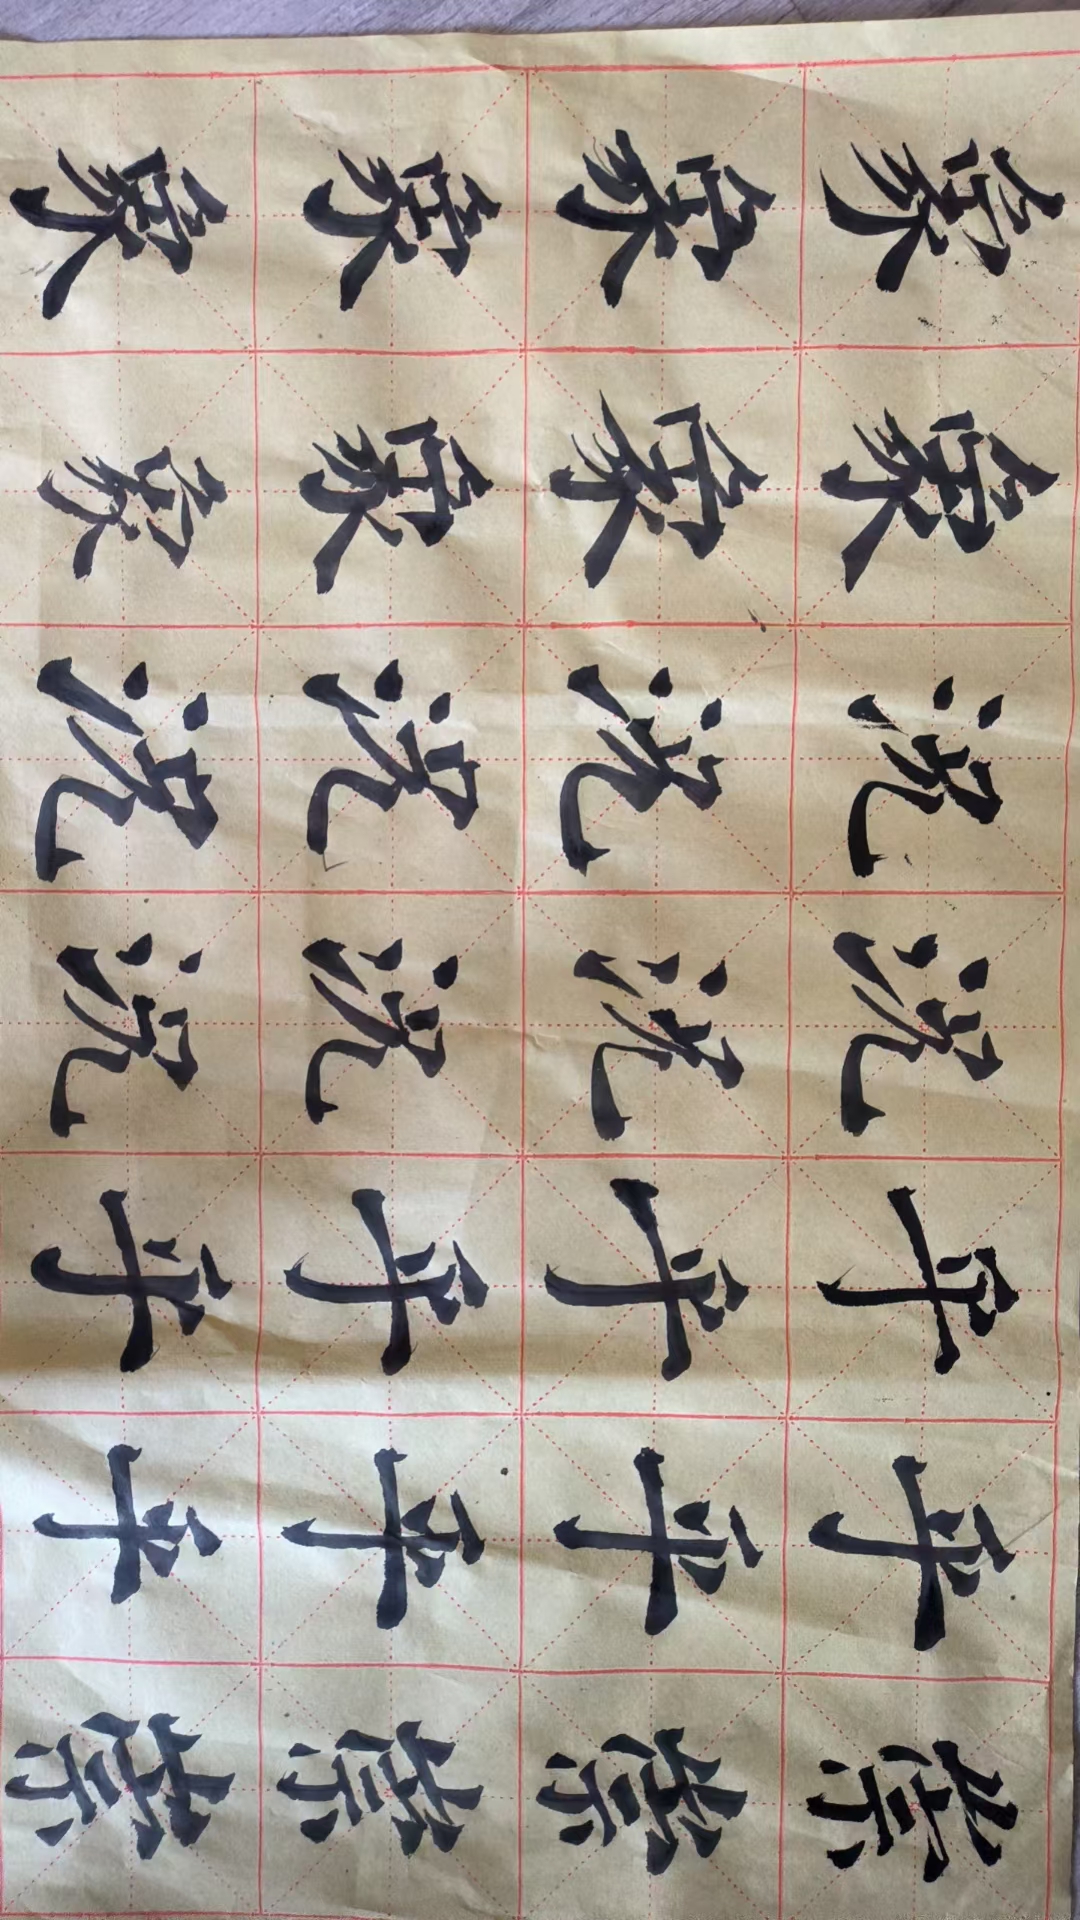 象象況況乎乎崇
象象況況乎乎崇
象象況況乎乎崇
象象況況乎乎崇